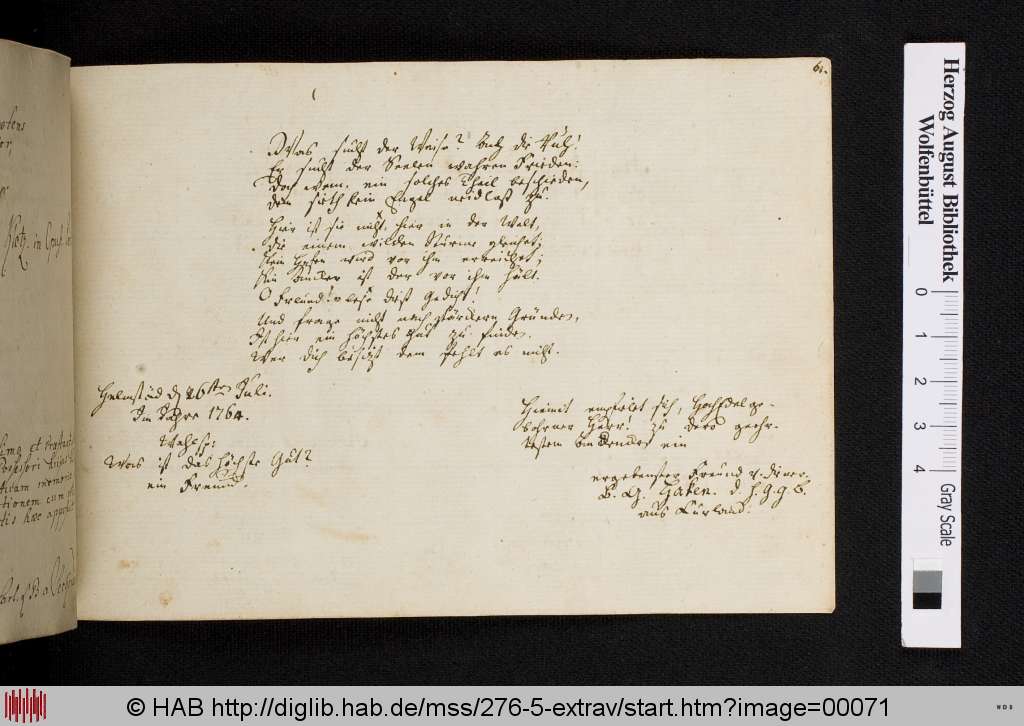 61.
Was sucht der Weise? Auch die Ruh!
Er sucht der Seelen wahren Frieden:
Doch wem ein solches Theil beschieden,
dem sieht kein Engel neidlos zu.
Hier ist sie nicht, hier in der Welt,
die einem wilden Sturme gleichet;
Kein Hafen wird vor ihm erreichet;
Kein Ancker ist der vor ihm hält.
O Freund! lese diß Gedicht!
Und frage nicht nach stärckern Gründen,
Ist hier ein höchstes Gut zu finden.
Wer dich besitzt dem fehlt es nicht.
Helmstäd d 26sten Juli.
Im Jahre 1764.
Wahlspr:
Was ist das höchste Gut?
ein Freund.
Hiemit empfielet sich, Hochedelge-
bohrner Herr! zu dero geehr-
testem Andencken ein
ergebenster Freund u. Diener
G. d. f. g. g. b.
aus Curland.
Herzog August Bibliothek
Wolfenbüttel
0
1
2
3
4
Gray Scale
© HAB http://diglib.hab.de/mss/276-5-extrav/start.htm?image=00071
WDB